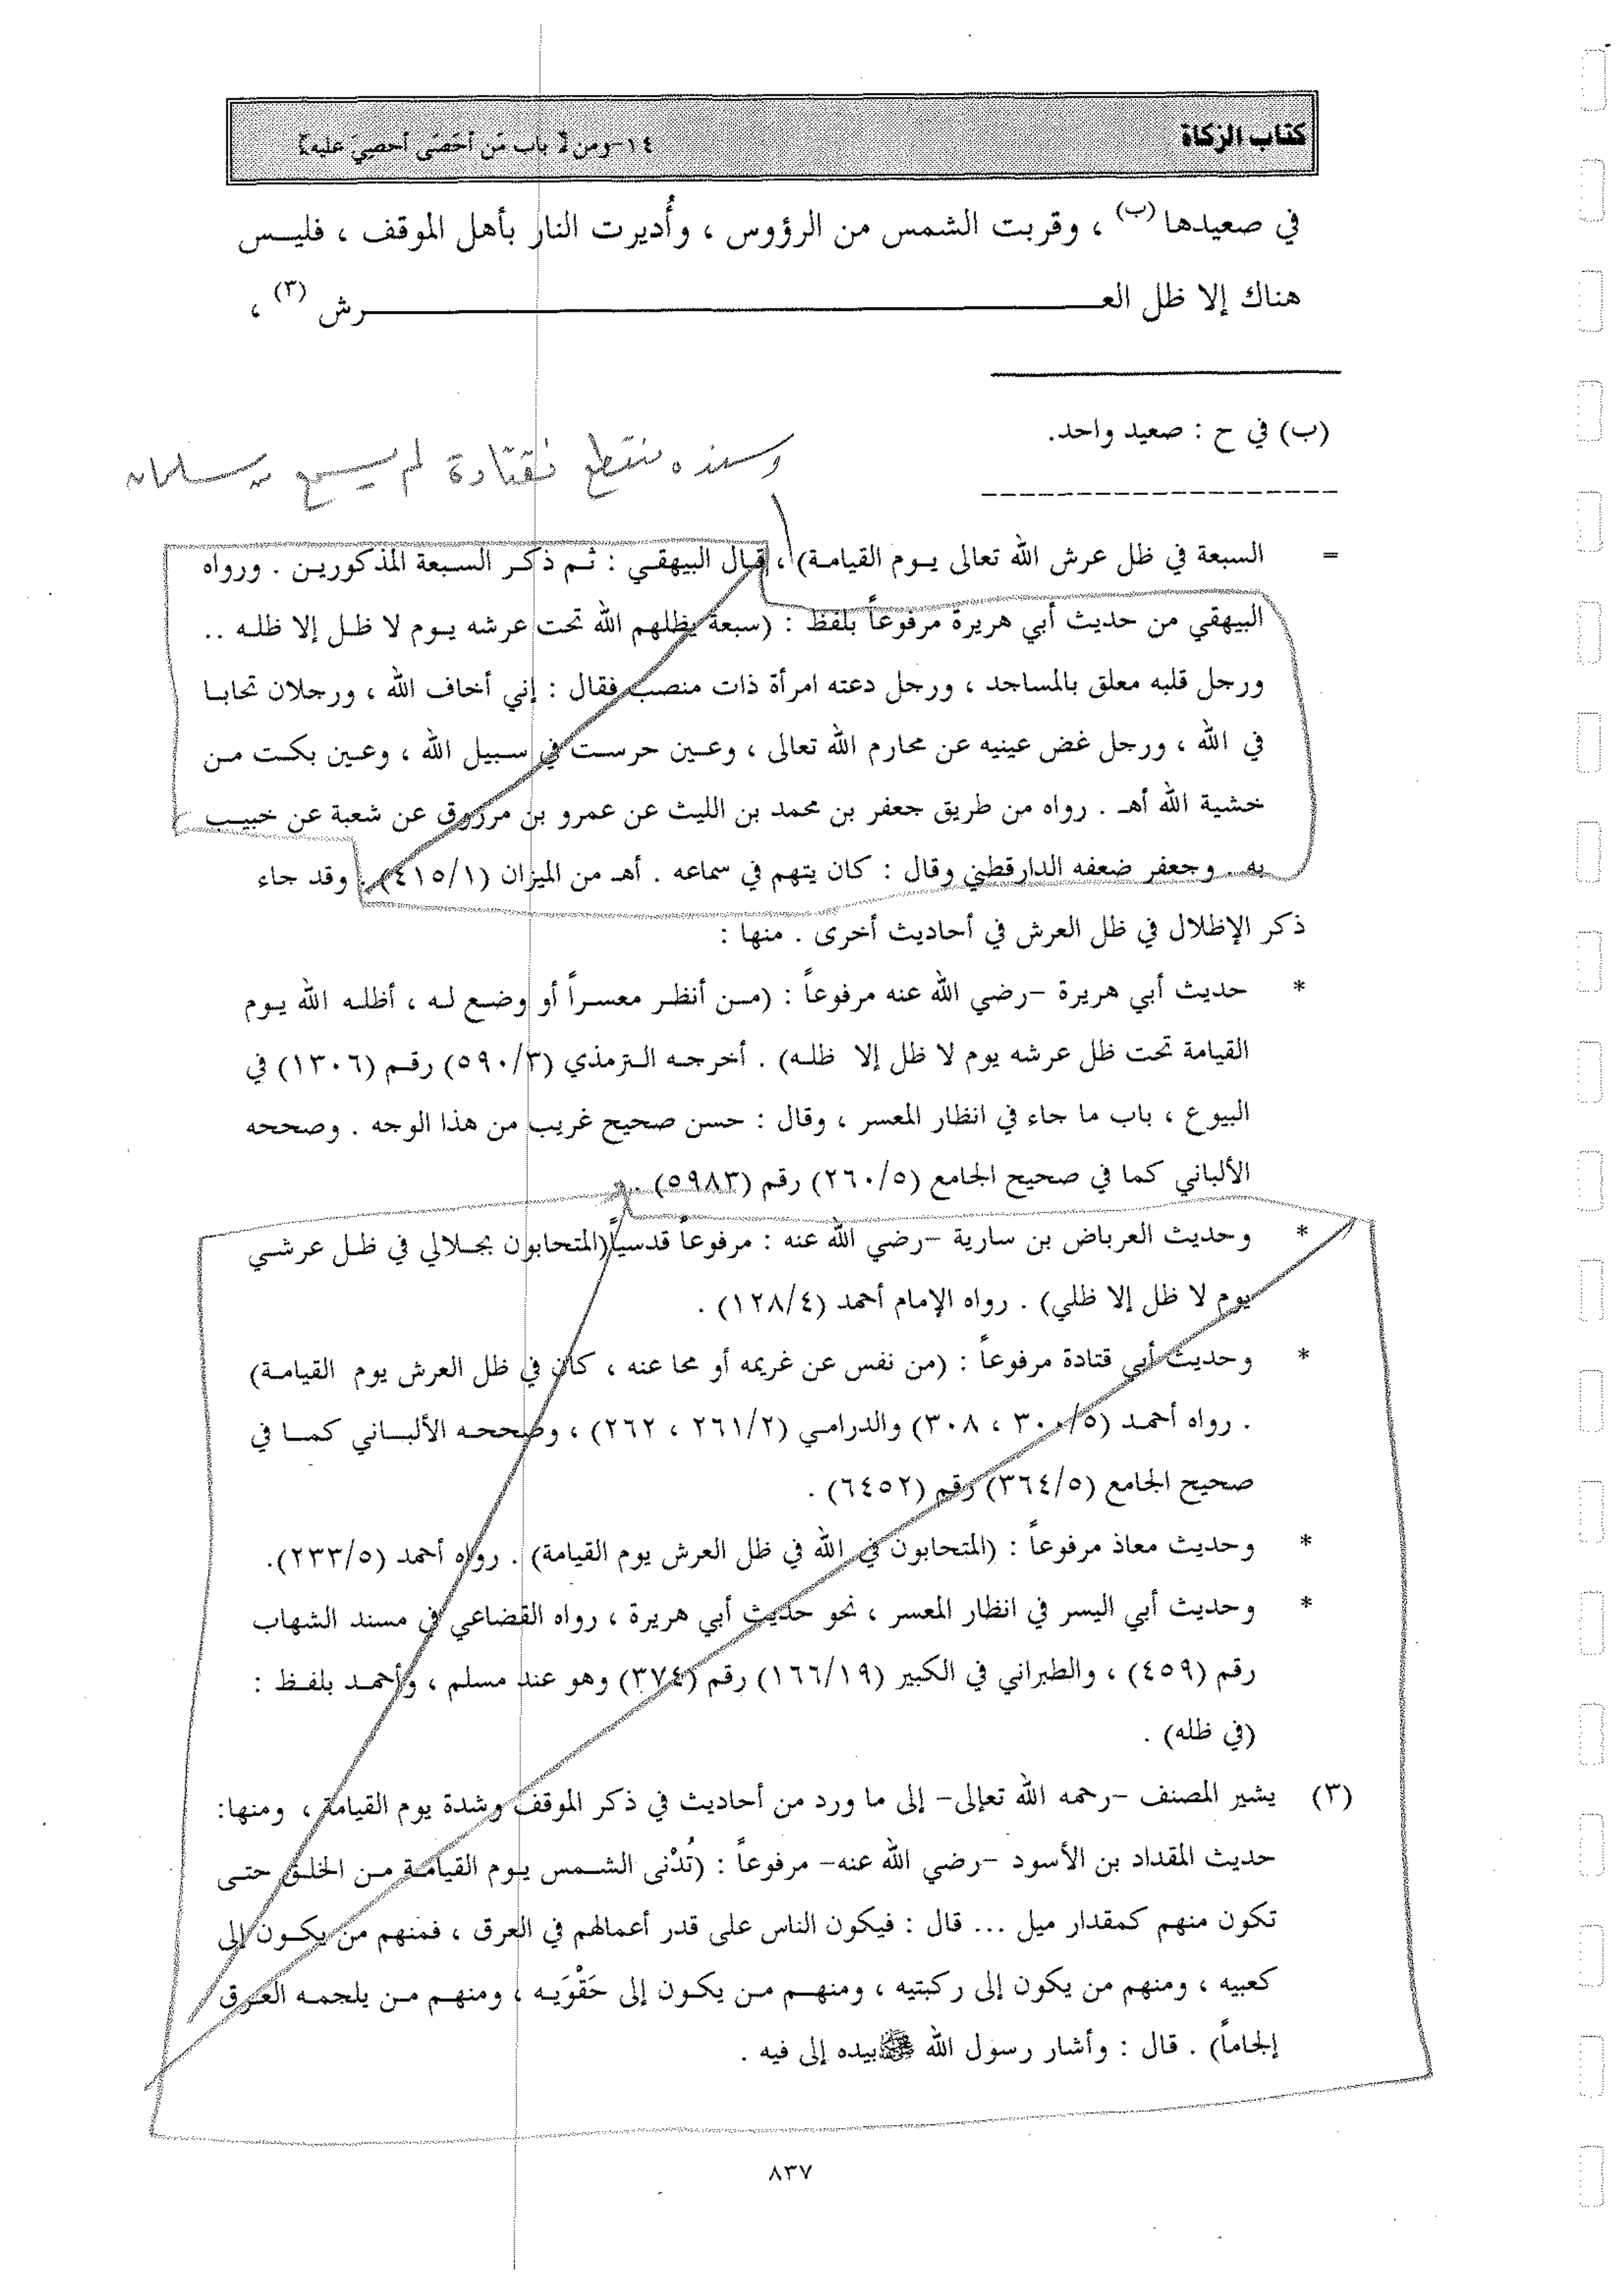 كتاب الزكاة
١٤-ومن [ باب مَن أحْصَى أحصِيَ عليه]
في صعيدها(ب) ، وقربت الشمس من الرؤوس ، وأُديرت النار بأهل الموقف ، فليـس
هناك إلا ظل العـــــرش (٣) ،
(ب) في ح : صعيد واحد.
وسنده منقطع فقتادة لم يسمع من سلمان
= السبعة في ظل عرش الله تعالى يـوم القيامـة) ، قـال البيهقـي : ثـم ذكـر السبعة المذكوريـن . ورواه
البيهقي من حديث أبي هريرة مرفوعاً بلفظ : (سبعة يظلهم الله تحت عرشه يـوم لا ظـل إلا ظلـه ..
ورجل قلبه معلق بالمساجد ، ورجل دعته امرأة ذات منصب فقال : إني أخاف الله ، ورجلان تحابـا
في الله ، ورجل غض عينيه عن محارم الله تعالى ، وعـين حرسـت في سـبيل الله ، وعـين بكـت مـن
خشية الله أهـ . رواه من طريق جعفر بن محمد بن الليث عن عمرو بن مرزوق عن شعبة عن خبيـب
به . وجعفر ضعفه الدارقطني وقال : كان يتهم في سماعه . أهـ من الميزان (٤١٥/١) . وقد جاء
ذكر الإظلال في ظل العرش في أحاديث أخرى . منها :
* حديث أبي هريرة -رضي الله عنه مرفوعاً : (مـن أنظـر معسـراً أو وضـع لـه ، أظلـه الله يـوم
القيامة تحت ظل عرشه يوم لا ظل إلا ظلـه) . أخرجـه الـترمذي (٥٩٠/٣) رقـم (١٣٠٦) في
البيوع ، باب ما جاء في انظار المعسر ، وقال : حسن صحيح غريب من هذا الوجه . وصححه
الألباني كما في صحيح الجامع (٢٦٠/٥) رقم (٥٩٨٣) .
* وحديث العرباض بن سارية -رضي الله عنه : مرفوعاً قدسياً (المتحابون بجـلالي في ظـل عرشـي
يوم لا ظل إلا ظلي) . رواه الإمام أحمد (١٢٨/٤) .
* وحديث أبي قتادة مرفوعاً : (من نفس عن غريمه أو محا عنه ، كان في ظل العرش يوم القيامـة)
. رواه أحمـد (٣٠٠/٥ ، ٣٠٨) والدرامـي (٢٦١/٢ ، ٢٦٢) ، وصححـه الألبـاني كمـا في
صحيح الجامع (٣٦٤/٥) رقم (٦٤٥٢) .
* وحديث معاذ مرفوعاً : (المتحابون في الله في ظل العرش يوم القيامة) . رواه أحمد (٢٣٣/٥).
* وحديث أبي اليسر في انظار المعسر ، نحو حديث أبي هريرة ، رواه القضاعي في مسند الشهاب
رقم (٤٥٩) ، والطبراني في الكبير (١٦٦/١٩) رقم (٣٧٤) وهو عند مسلم ، وأحمـد بلفـظ :
(في ظله) .
(٣) يشير المصنف -رحمه الله تعإلى- إلى ما ورد من أحاديث في ذكر الموقف وشدة يوم القيامة ، ومنها:
حديث المقداد بن الأسود -رضي الله عنه- مرفوعاً : (تُدْنى الشـمس يـوم القيامـة مـن الخلـق حتـى
تكون منهم كمقدار ميل ... قال : فيكون الناس على قدر أعمالهم في العرق ، فمنهم من يكـون إلى
كعبيه ، ومنهم من يكون إلى ركبتيه ، ومنهـم مـن يكـون إلى حَقْوَيـه ، ومنهـم مـن يلجمـه العـرق
إلجاماً) . قال : وأشار رسول الله ﷺ بيده إلى فيه .
٨٣٧